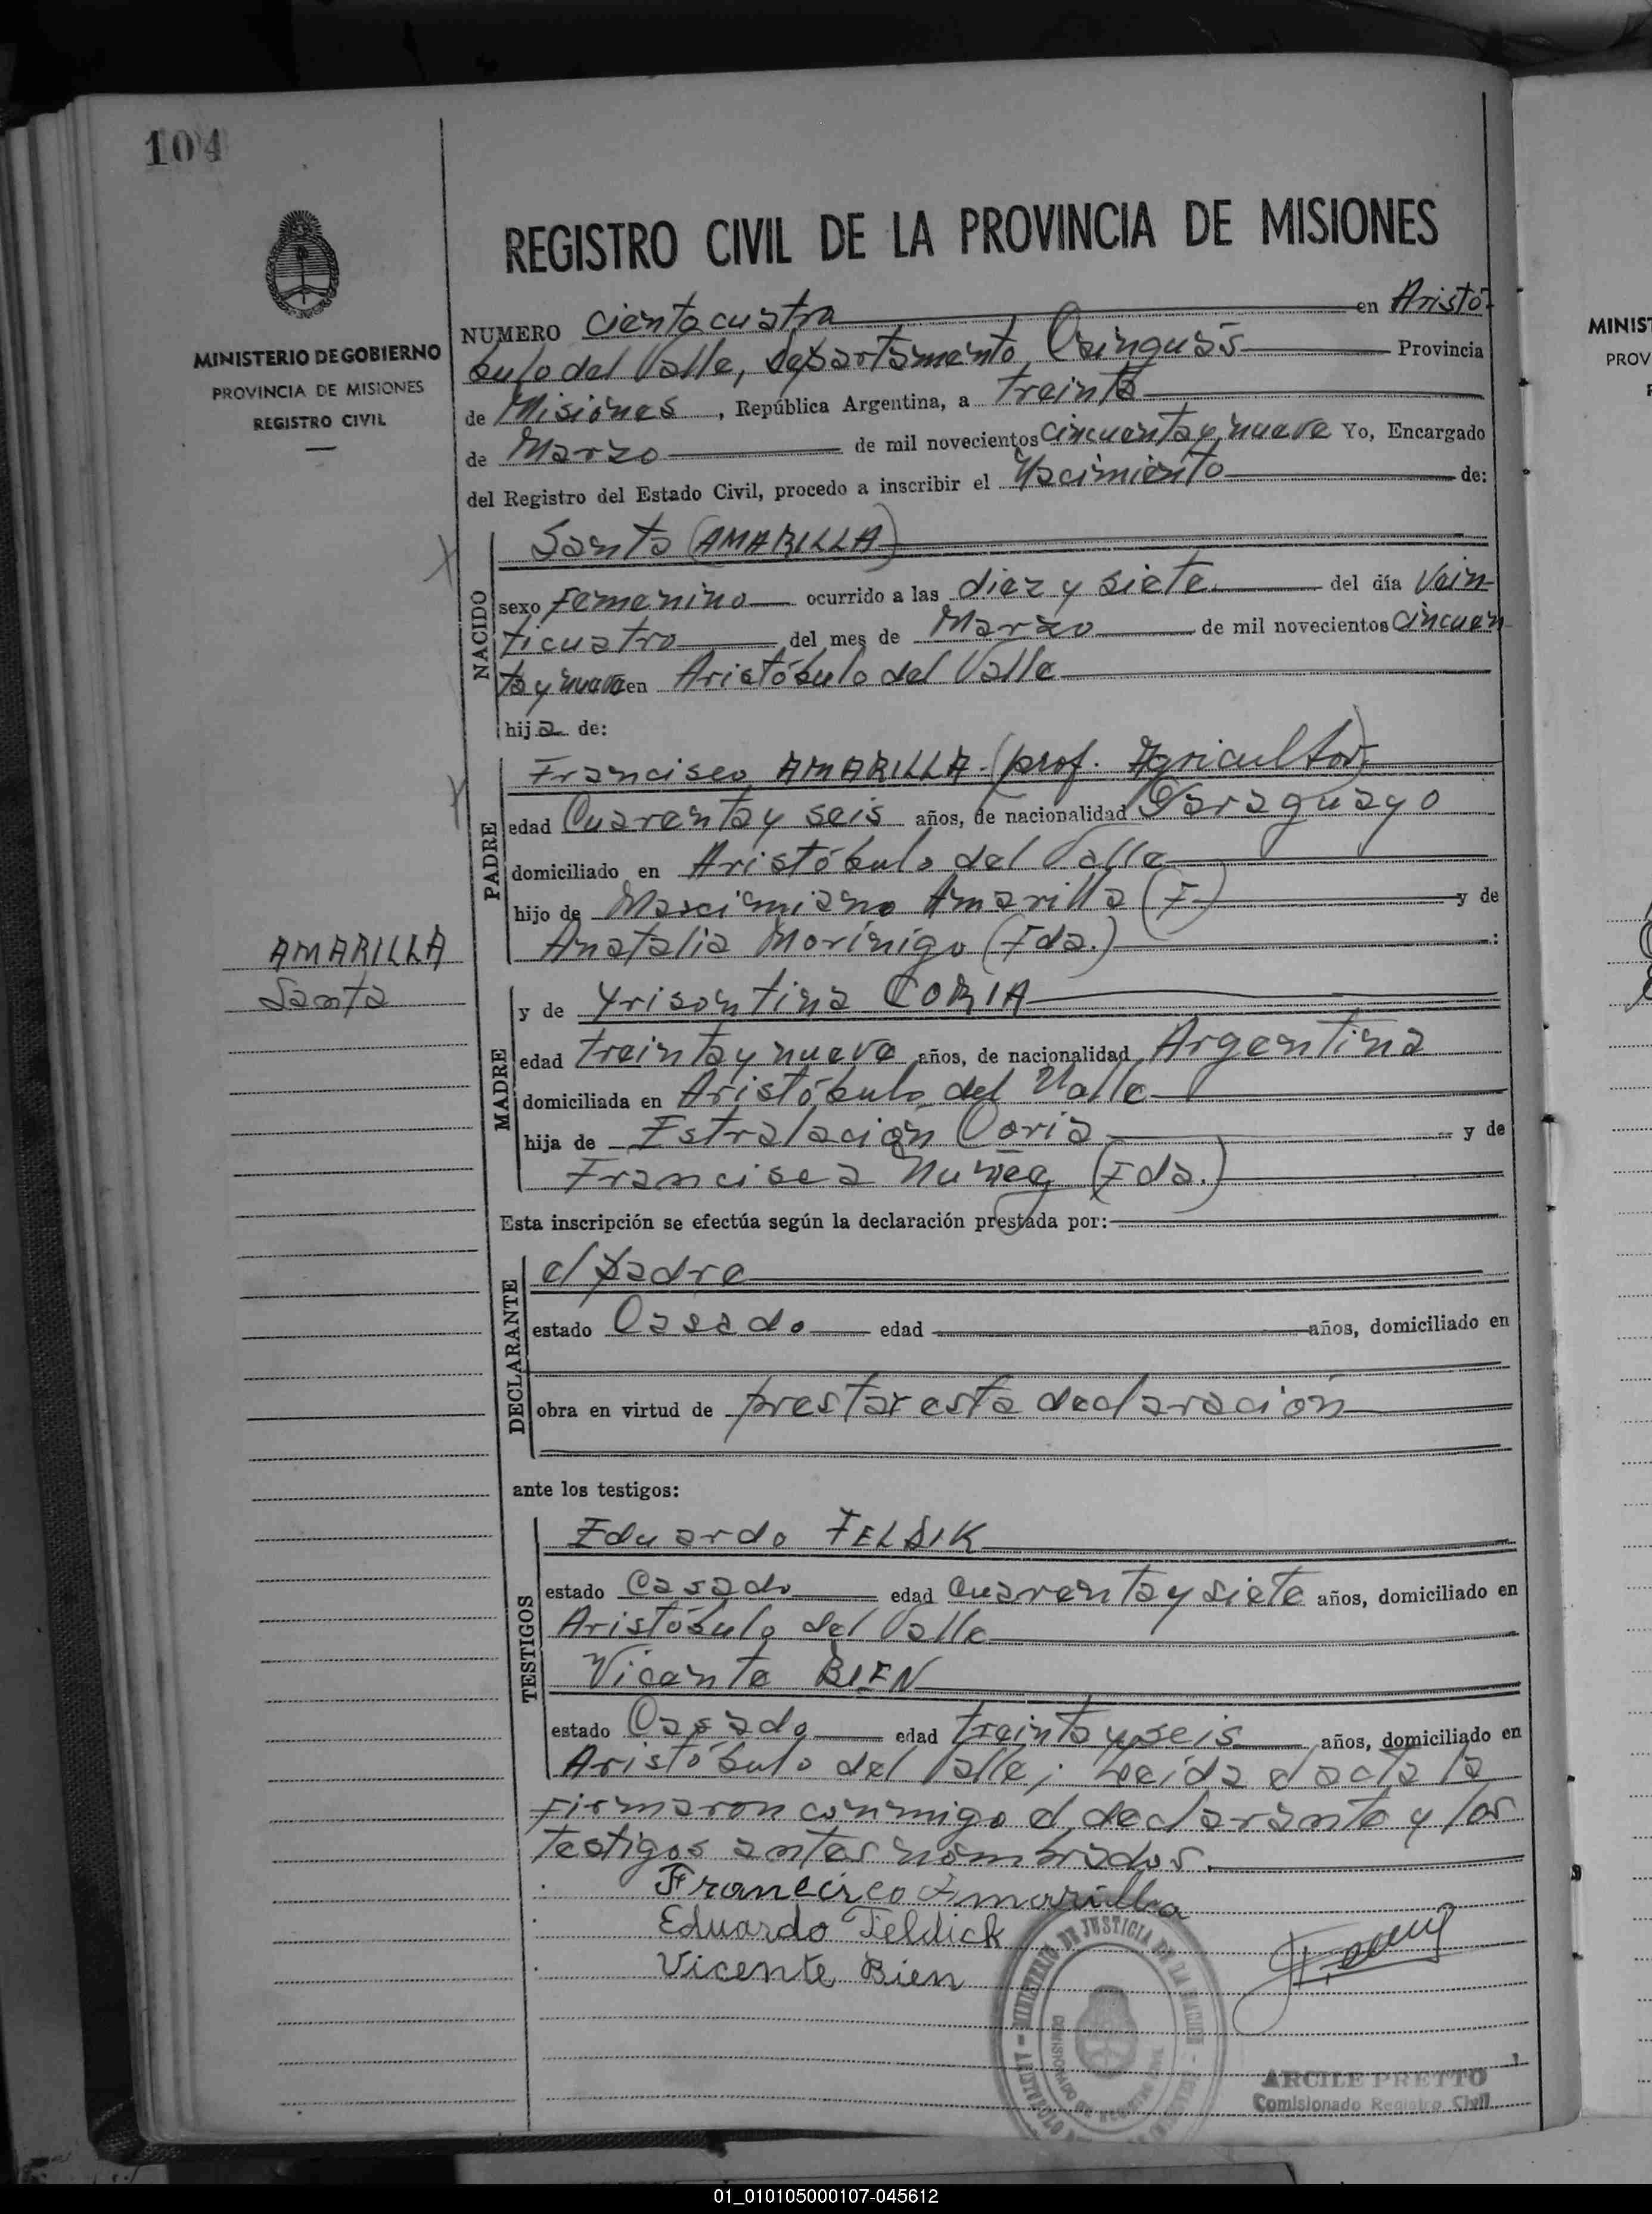 104
MINISTERIO DE GOBIERNO
PROVINCIA DE MISIONES
REGISTRO CIVIL
REGISTRO CIVIL DE LA PROVINCIA DE MISIONES
NUMERO cientocuatro en Aristó-
bulo del Valle, Departamento Cainguás Provincia
de Misiones, República Argentina, a treinta
de Marzo de mil novecientos cincuenta y nueve Yo, Encargado
del Registro del Estado Civil, procedo a inscribir el Nacimiento de:
NACIDO
Santa (AMARILLA)
sexo Femenino ocurrido a las diez y siete del día Vein-
ticuatro del mes de Marzo de mil novecientos Cincuen-
ta y nueve en Aristóbulo del Valle
hija de:
PADRE
Francisco AMARILLA (prof. Agricultor)
edad Cuarenta y seis años, de nacionalidad Paraguayo
domiciliado en Aristóbulo del Valle
hijo de Marcimiano Amarilla (F) y de
Anatalia Morinigo (Fda.) :
AMARILLA
Santa
MADRE
y de Yrisontina CORIA
edad treinta y nueve años, de nacionalidad Argentina
domiciliada en Aristóbulo del Valle
hija de Estralación Coria y de
Francisca Nuñez (Fda.)
Esta inscripción se efectúa según la declaración prestada por:
DECLARANTE
el padre
estado Casado edad años, domiciliado en
obra en virtud de prestar esta declaración
ante los testigos:
TESTIGOS
Eduardo FELDIK
estado Casado edad Cuarenta y siete años, domiciliado en
Aristóbulo del Valle
Vicente BIEN
estado Casado edad treinta y seis años, domiciliado en
Aristóbulo del Valle; Leída el acta la
firmaron conmigo el declarante y los
testigos antes nombrados.
Francisco Amarilla
Eduardo Feldick
Vicente Bien
MINISTERIO DE JUSTICIA DE LA NACION
ARCILE PRETTO
Comisionado Registro Civil
MINIST
PROV
01_010105000107-045612